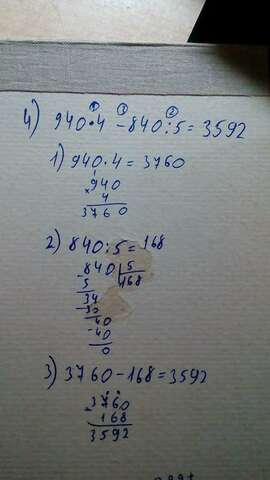 ① ③ ②
4) 940·4 - 840:5 = 3592
1) 940·4 = 3760
940
× 4
3760
2) 840:5 = 168
840 | 5
- 5 | 168
34
- 30
40
- 40
0
3) 3760 - 168 = 3592
3760
- 168
3592